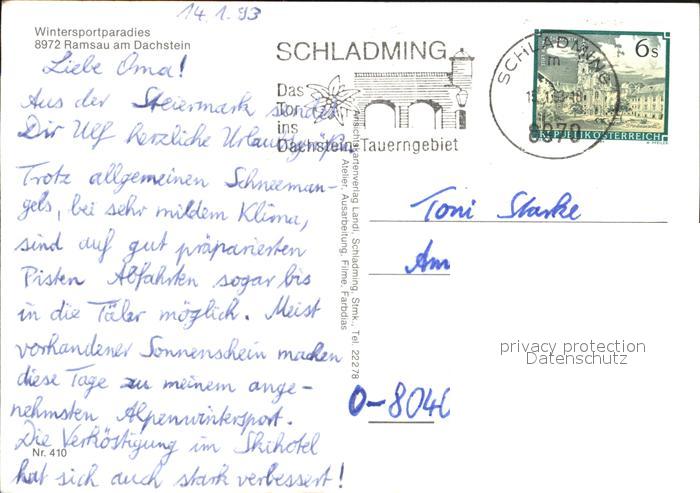 14.1.93
Wintersportparadies
8972 Ramsau am Dachstein
Liebe Oma!
Aus der Steiermark sendet
Dir Ulf herzliche Urlaubsgrüße.
Trotz allgemeinen Schneeman-
gels, bei sehr mildem Klima,
sind auf gut präparierten
Pisten Abfahrten sogar bis
in die Täler möglich. Meist
vorhandener Sonnenschein machen
diese Tage zu meinem ange-
nehmsten Alpenwintersport.
Die Verköstigung im Skihotel
hat sich auch stark verbessert!
Nr. 410
Ansichtskartenverlag Landl, Schladming, Stmk., Tel. 22278
Atelier, Ausarbeitung, Filme, Farbdias
SCHLADMING
Das
Tor
ins
Dachstein-Tauerngebiet
SCHLADMING
8970
6 S
REPUBLIK ÖSTERREICH
Toni Starke
Am
O-804
privacy protection
Datenschutz